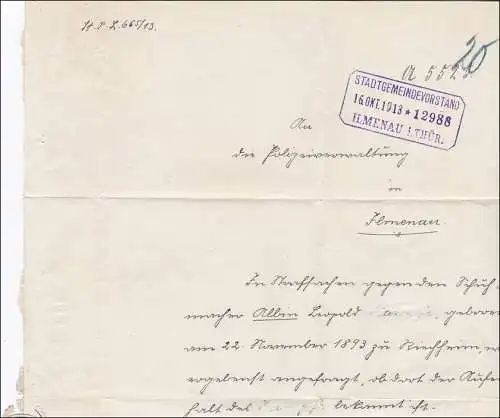 St. P. L. 665/13.
20
A 552
STADTGEMEINDEVORSTAND
16.OKT.1913 * 12988
ILMENAU i.THÜR.
An
die Polizeiverwaltung
in
Ilmenau.
In Strafsachen gegen den Schuh-
macher Albin Leopold geboren
am 22. November 1893 zu Kirchheim,
ergebenst angefragt, ob dort der Aufent
halt des bekannt ist.